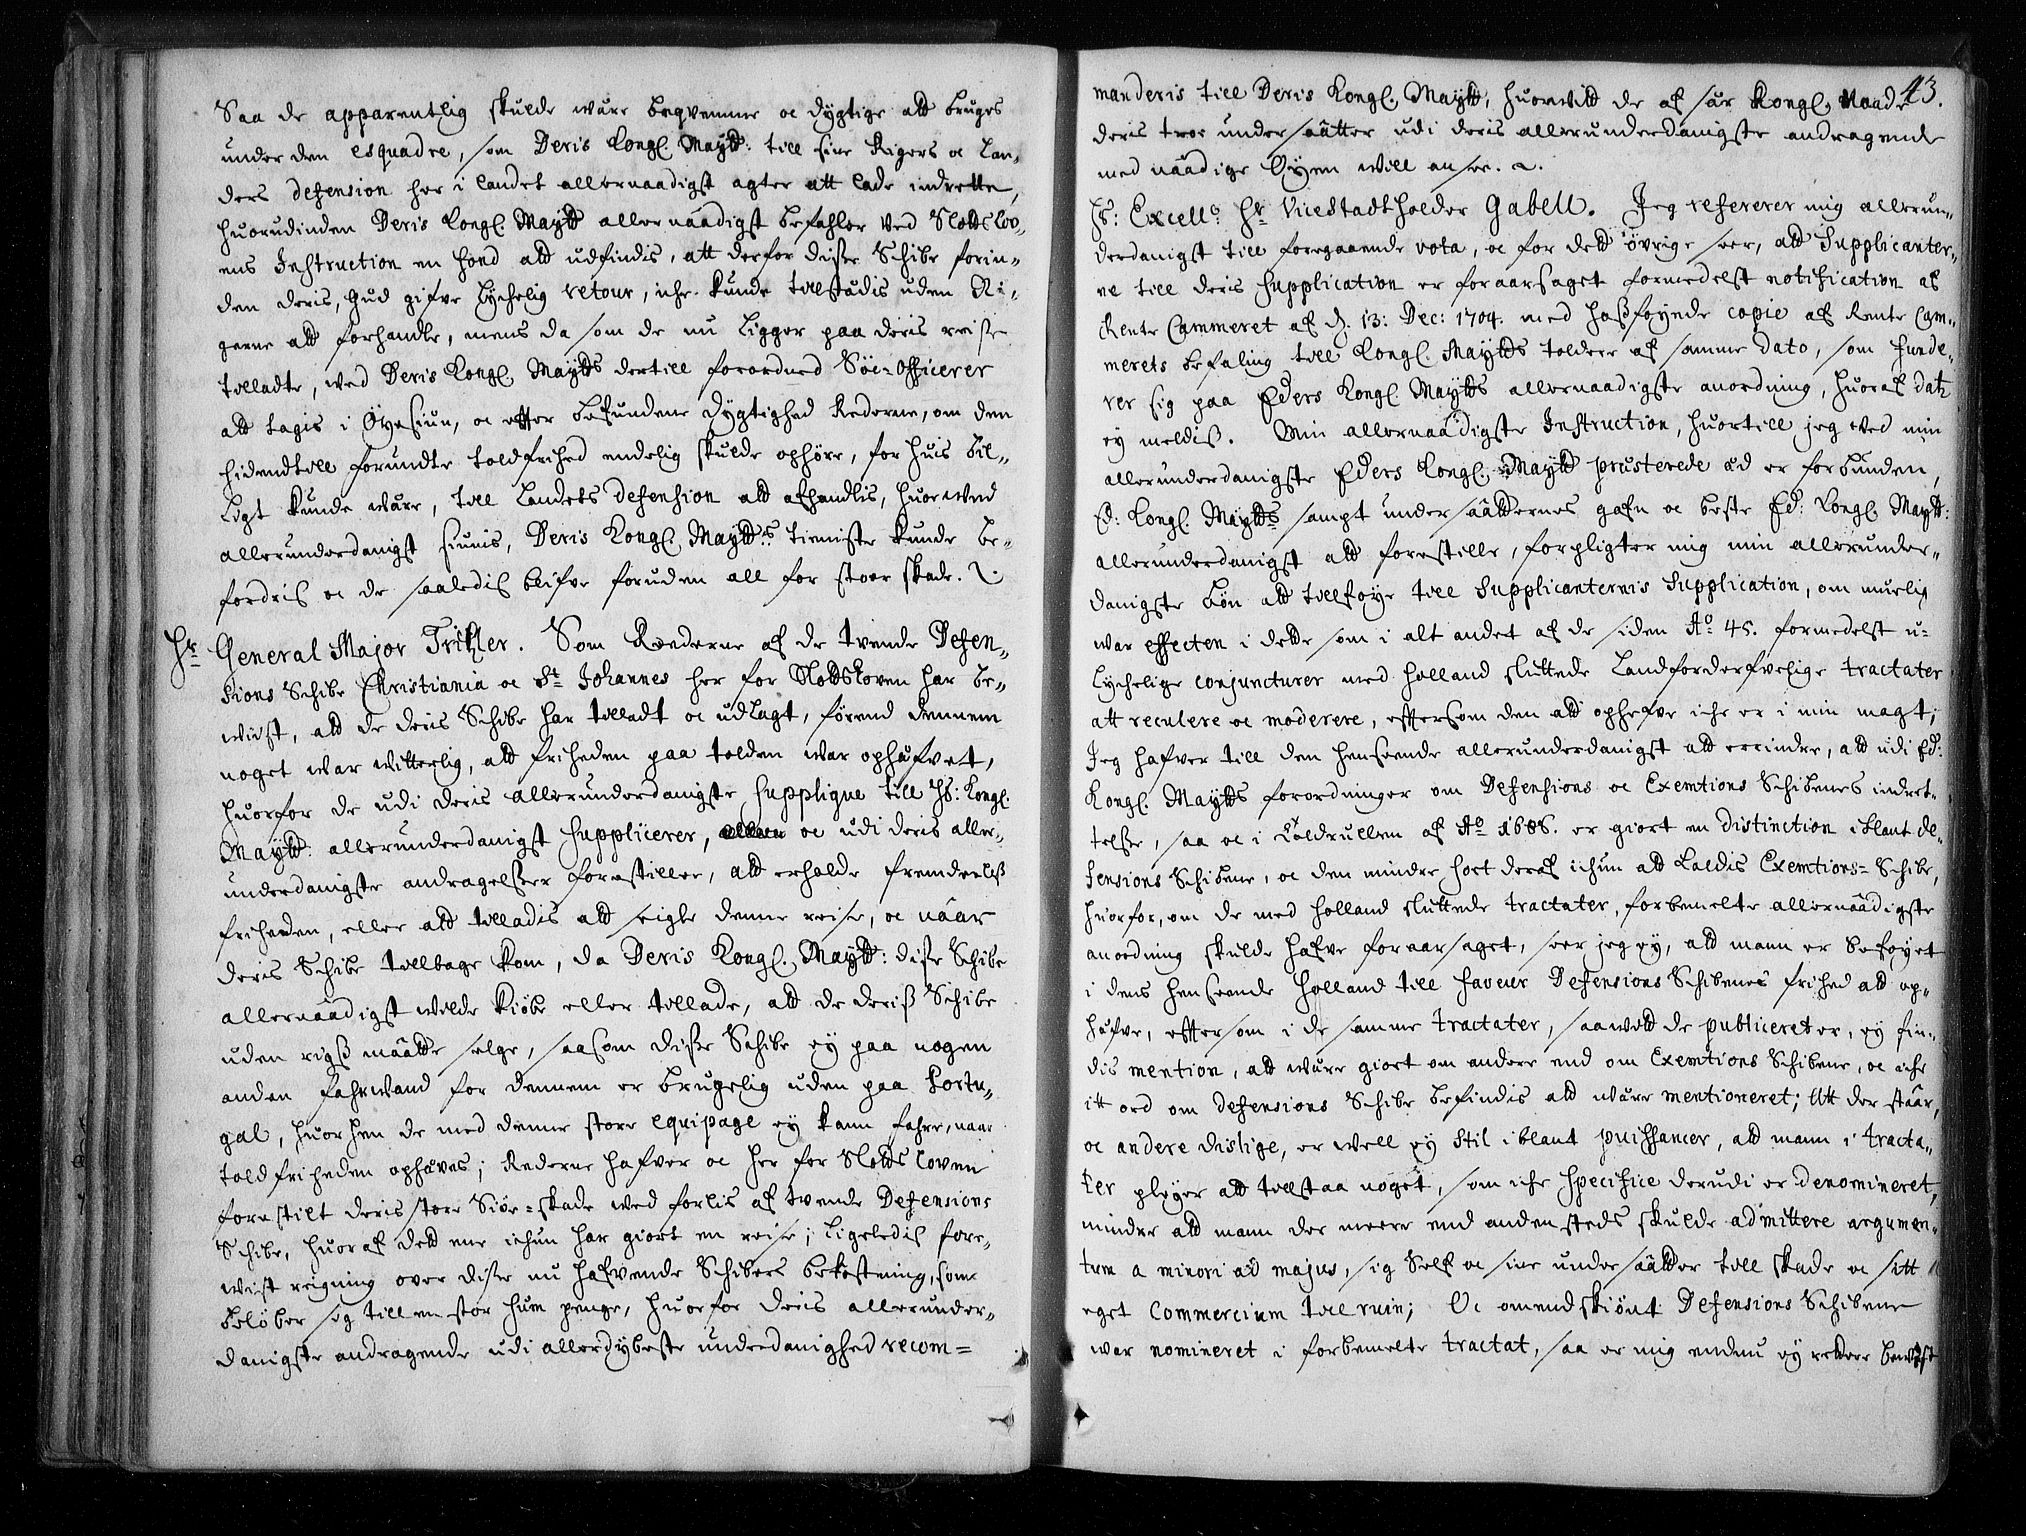 Saa de apparentlig skulde wære beqvemme oc dygtige att bruges
under den esquadre, som Deris Kongl. Maytt: till sine Rigers oc Lan-
ders defension her i landet allernaadigst agter att lade indrette,
huorudinden Deris Kongl. Maytt allernaadigst befahler ved Slotzlov-
ens Instruction en fond att udfindis, att derfor disse Schibe forin-
den deris, Gud gifve lychelig retour, iche kunde tilstædis uden Ri-
gerne att forhandle, mens da som de nu ligger paa deris reise
tilladte, wed Deris Kongl. Maytts dertill forordned Söe-Officerer
att tagis i Öyesiun, oc effter befundene dygtighed Rederne, om den
hidendtill forundte toldfrihed endelig skulde ophöre, for huis bil-
ligt kunde wære, till Landets defension att afhandlis, huorwed
allerunderdanigst siunis, Deris Kongl. Maytts tienniste kunde be-
fordris oc de saaledis blifve foruden all for stoer skade.
Hr General Major Tritzler. Som Ræderne af de tvende Defen-
sions Schibe Christiania oc St Johannes her for Slottsloven har be-
wiist, att de deris Schibe har tilladt oc udlagt, förend dennem
noget war witterlig, att friheden paa tolden war ophæfvet,
huorfor de udi deris allerunderdanigste supplique till Hs: Kongl.
Maytt: allerunderdanigst supplicerer, oc udi deris aller-
underdanigste andragelser forestiller, att erholde fremdeelis
friheden, eller att tilladis att seigle denne reise, oc naar
deris Schibe tillbage kom, da Deris Kongl. Maytt: disse Schibe
allernaadigst wilde kiöbe eller tillade, att de deris Schibe
uden rigs maatte selge, saasom disse Schibe ey paa nogen
anden fahrwand for dennem er brugelig uden paa Portu-
gal, huorhen de med denne store equipage ey kann fahre, naar
toldfriheden ophæves; Rederne hafver oc her for Slotts loven
forestilt deris store Siöe-skade wed forliis af tvende Defensions
Schibe, huoraf dett ene ichun har giort en reise; ligeledis fore-
wiist reigning over disse nu hafvende Schibers bekostning, som
belöber sig till en stor sum penge, huorfor deris allerunder-
danigste andragende udi allerdybeste underdanighed recom-
43.
manderis till Deris Kongl. Maytt, huorwitt de af sær Kongl. Naade
deris troe undersaatter udi deris allerunderdanigste andragende
med naadige Öyen will ansee.
Hs: Excell: Hr Vicestadtholder Gabell. Jeg refererer mig allerun-
derdanigst till foregaaende vota, oc for dett övrige seer, att Supplicanter-
ne till deris Supplication er foraarsaget formedelst notification af
Rente Cammeret af d. 13: Dec: 1704. med hosföyede copie af Rente Cam-
merets befaling till Kongl. Maytts toldere af samme dato, som funde-
rer sig paa Eders Kongl. Maytts allernaadigste anordning, huoraf dato
ey meldis. Min allernaadigste Instruction, huortill jeg ved min
allerunderdanigste Eders Kongl. Maytt præsterede æd er forbunden,
Ed: Kongl. Maytts sampt undersaatternes gafn oc beste Ed: Kongl. Maytt:
allerunderdanigst att forestille, forpligter mig min allerunder-
danigste bön att tillföye till Supplicanternis Supplication, om muelig
war effecten i dette som i alt andet af de siden Ao 45. formedelst u-
lychelige conjuncturer med Holland sluttede landforderfvelige tractater
att reculere oc moderere, efftersom den att ophefve iche er i min magt;
Jeg hafver till den henseende allerunderdanigst att errindre, att udi Ed:
Kongl. Maytts forordninger om Defensions oc Exemtions Schibenes indret-
telse, saa oc i Toldrullen af Ao 1686. er giort en distinction iblant de-
fensions Schibene, oc den mindre sort deraf ichun att kaldis Exemtions-Schibe,
huorfor, om de med Holland sluttede tractater, forbemelte allernaadigste
anordning skulde hafve foraarsaget, seer jeg ey, att mann er beföyet
i dens henseende Holland till faveur Defensions Schibenes frihed att op-
hæfve, eftersom i de samme tractater, saawitt de publiceret er, ey fin-
dis mention, att wære giort om andere end om Exemtions Schibene, oc iche
itt ord om defensions Schibe befindis att wære mentioneret; Att der staar,
oc andere dislige, er well ey Stil iblant puissancer, att mann i tracta-
ter pleyer att tilstaa noget, som iche specifice derudi er denomineret,
mindre att mann der meere end andensteds skulde admittere argumen-
tum a minori ad majus, sig Self oc sine undersaatter till skade oc sitt
eget Commercium till ruin; Oc omendskiönt Defensions Schibene
war nomineret i forbemelte tractat, saa er mig endnu ey videre bewist